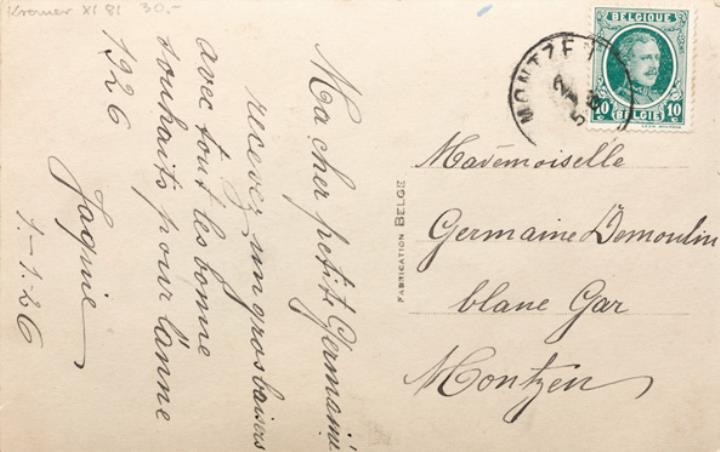 Kromer XI 81 30.-
Ma cher petit Germaine
recevez un gros baisers
avec tout les bonne
souhaits pour l'anne
1926
Jaqnie
1.-1.26
FABRICATION BELGE
MONTZEN
2
1
BELGIQUE
10 10
c c
BELGIE
Mademoiselle
Germaine Demoulin
blanc Gar
Montzen